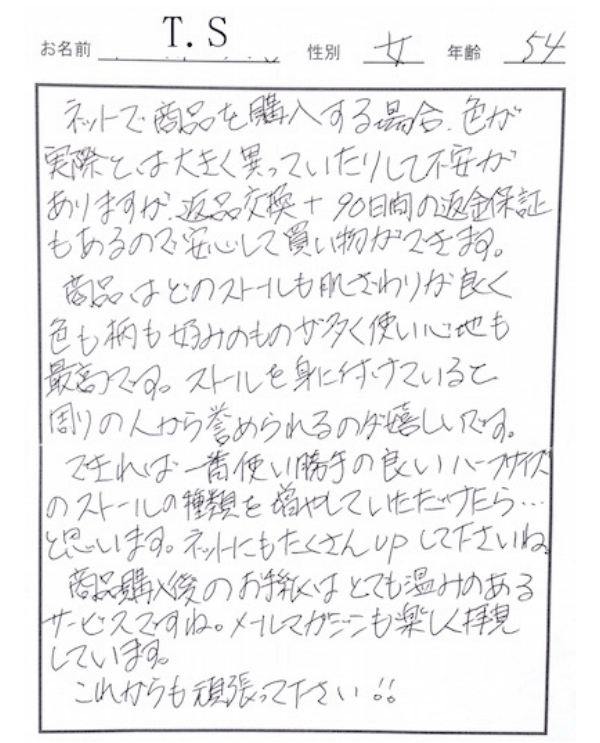 お名前 T.S 性別 女 年齢 54
ネットで商品を購入する場合、色が
実際とは大きく異っていたりして不安が
ありますが、返品交換+90日間の返金保証
もあるので安心して買い物ができます。
商品はどのストールも肌ざわりが良く
色も柄も好みのものが多く使い心地も
最高です。ストールを身に付けていると
周りの人から誉められるのが嬉しいです。
できれば一番使い勝手の良いハーフサイズ
のストールの種類を増やしていただけたら…
と思います。ネットにもたくさんupして下さいね。
商品購入後のお手紙はとても温みのある
サービスですね。メールマガジンも楽しく拝見
しています。
これからも頑張って下さい!!